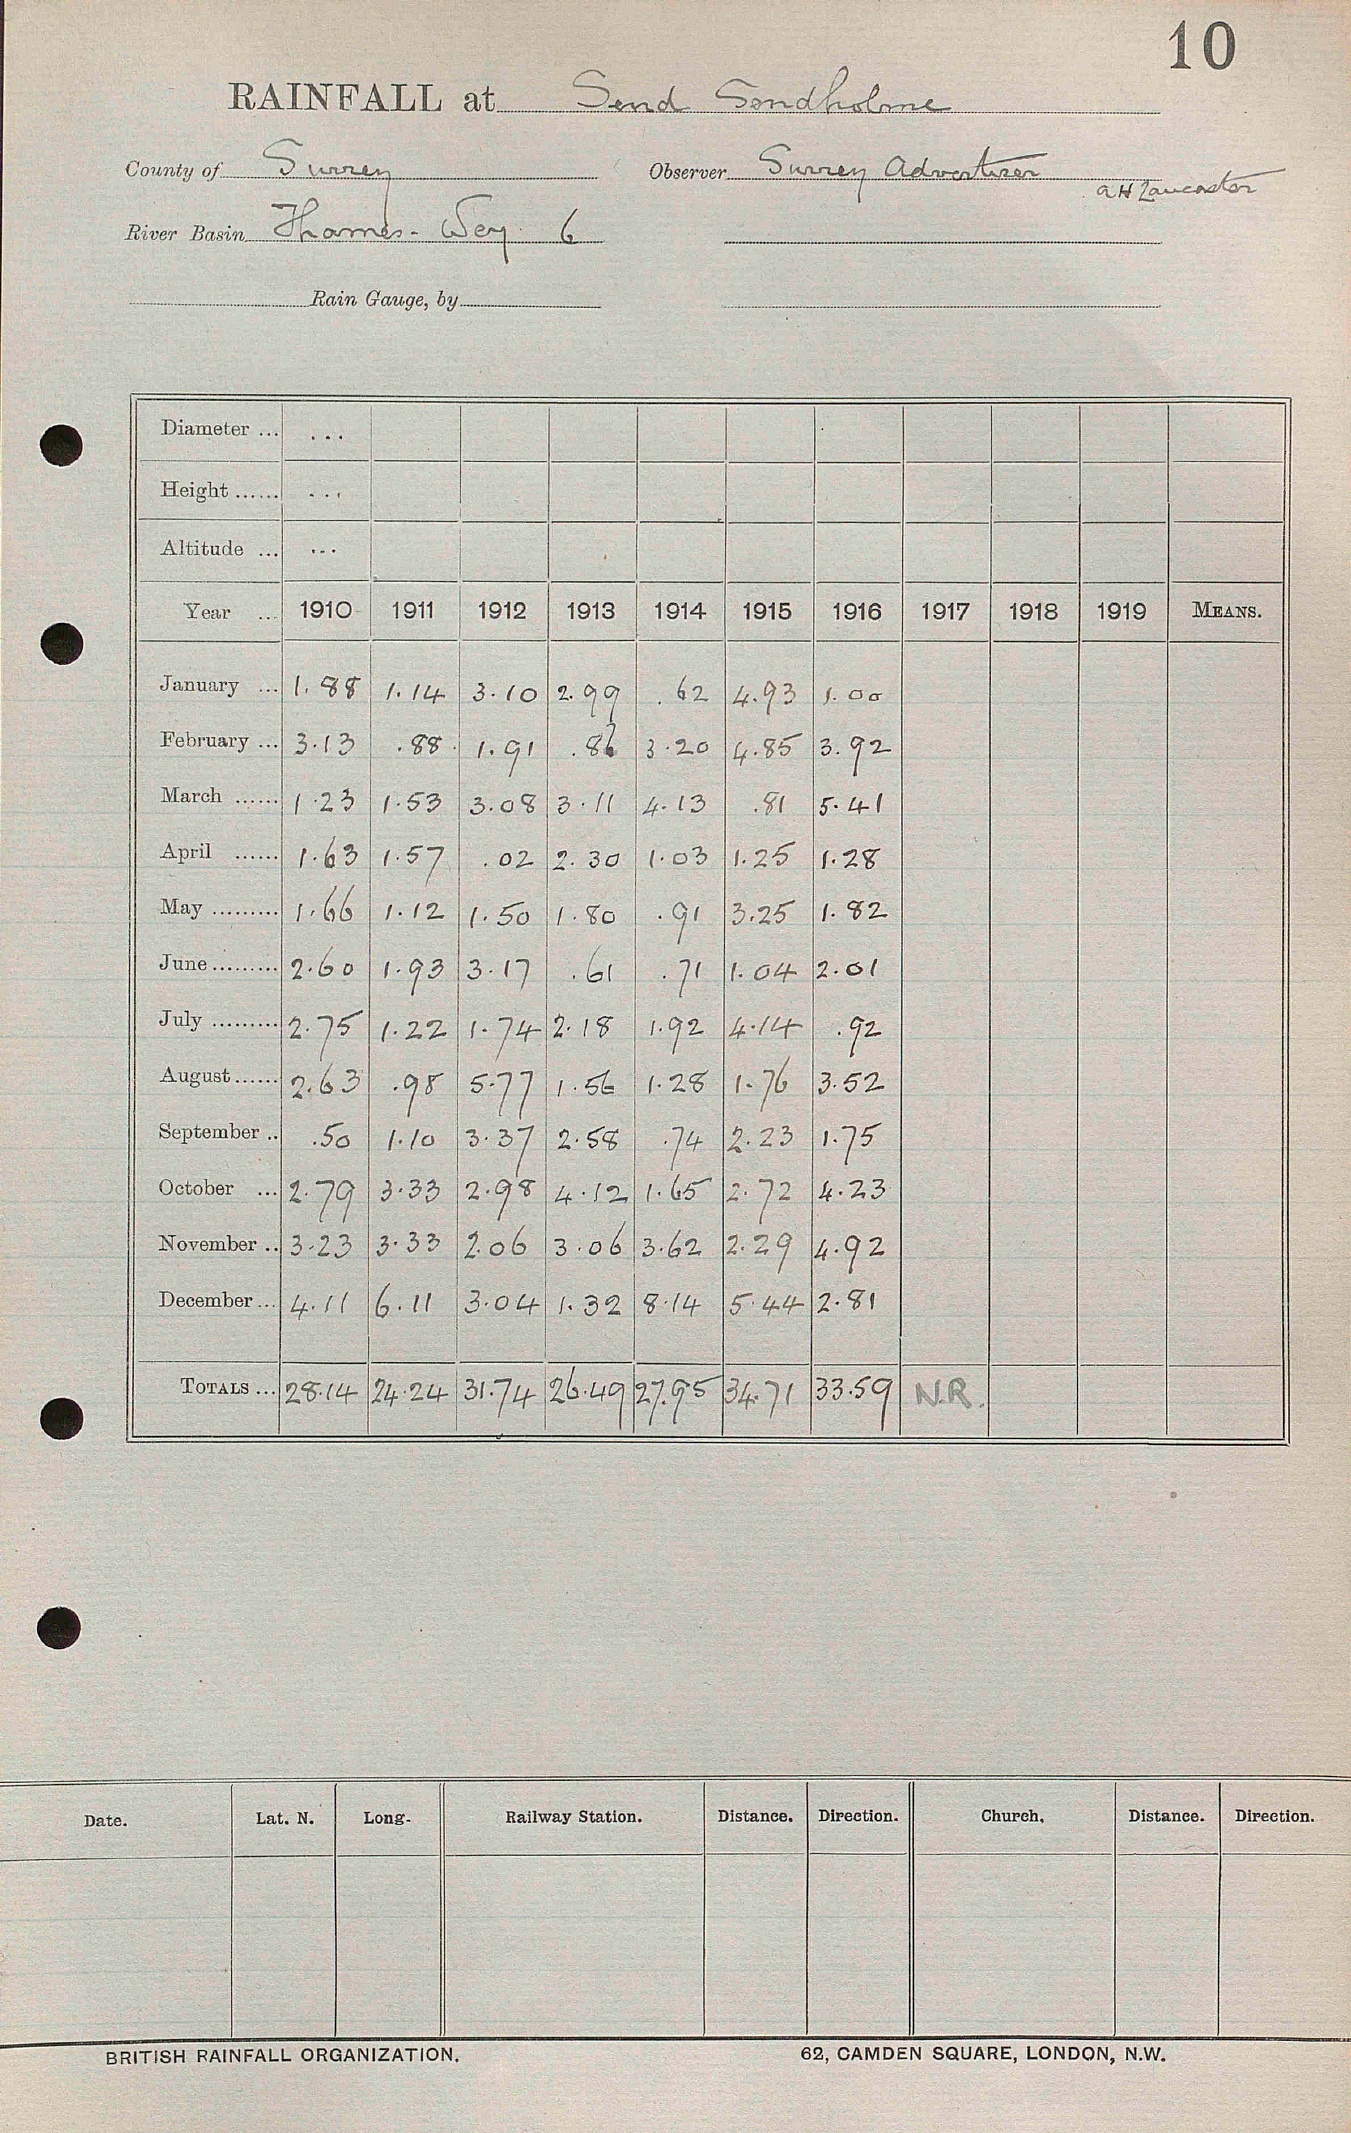 10
RAINFALL at Send Sendholme
County of Surrey Observer Surrey Advertiser
A H Lancaster
River Basin Thames - Wey 6
Rain Gauge, by
Diameter ... ...
Height ...... ...
Altitude ... ...
Year ... 1910 1911 1912 1913 1914 1915 1916 1917 1918 1919 MEANS.
January ... 1.88 1.14 3.10 2.99 .62 4.93 1.00
February ... 3.13 .88 1.91 .86 3.20 4.85 3.92
March ...... 1.23 1.53 3.08 3.11 4.13 .81 5.41
April ...... 1.63 1.57 .02 2.30 1.03 1.25 1.28
May ......... 1.66 1.12 1.50 1.80 .91 3.25 1.82
June ......... 2.60 1.93 3.17 .61 .71 1.04 2.01
July ......... 2.75 1.22 1.74 2.18 1.92 4.14 .92
August ...... 2.63 .98 5.77 1.56 1.28 1.76 3.52
September .. .50 1.10 3.37 2.58 .74 2.23 1.75
October ... 2.79 3.33 2.98 4.12 1.65 2.72 4.23
November .. 3.23 3.33 2.06 3.06 3.62 2.29 4.92
December ... 4.11 6.11 3.04 1.32 8.14 5.44 2.81
TOTALS ... 28.14 24.24 31.74 26.49 27.95 34.71 33.59 N.R.
Date. Lat. N. Long. Railway Station. Distance. Direction. Church. Distance. Direction.
BRITISH RAINFALL ORGANIZATION. 62, CAMDEN SQUARE, LONDON, N.W.